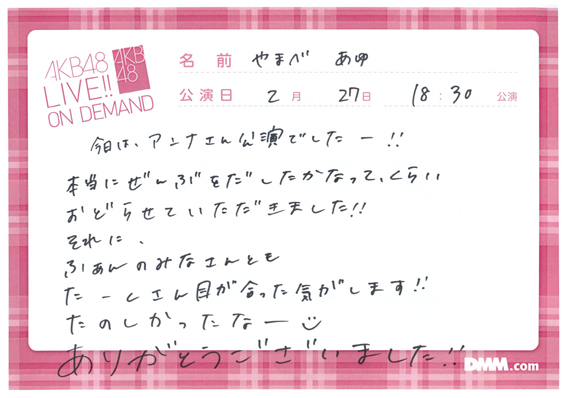 AKB48
LIVE!!
ON DEMAND
AKB
48
名前 やまべ あゆ
公演日 2月 27日 18:30 公演
今日は、アンナさん公演でしたー!!
本当にぜんぶをだしたかなって、くらい
おどらせていただきました!!
それに、
ふぁんのみなさんとも
たーくさん目が合った気がします!!
たのしかったなー
ありがとうございました!!
DMM.com